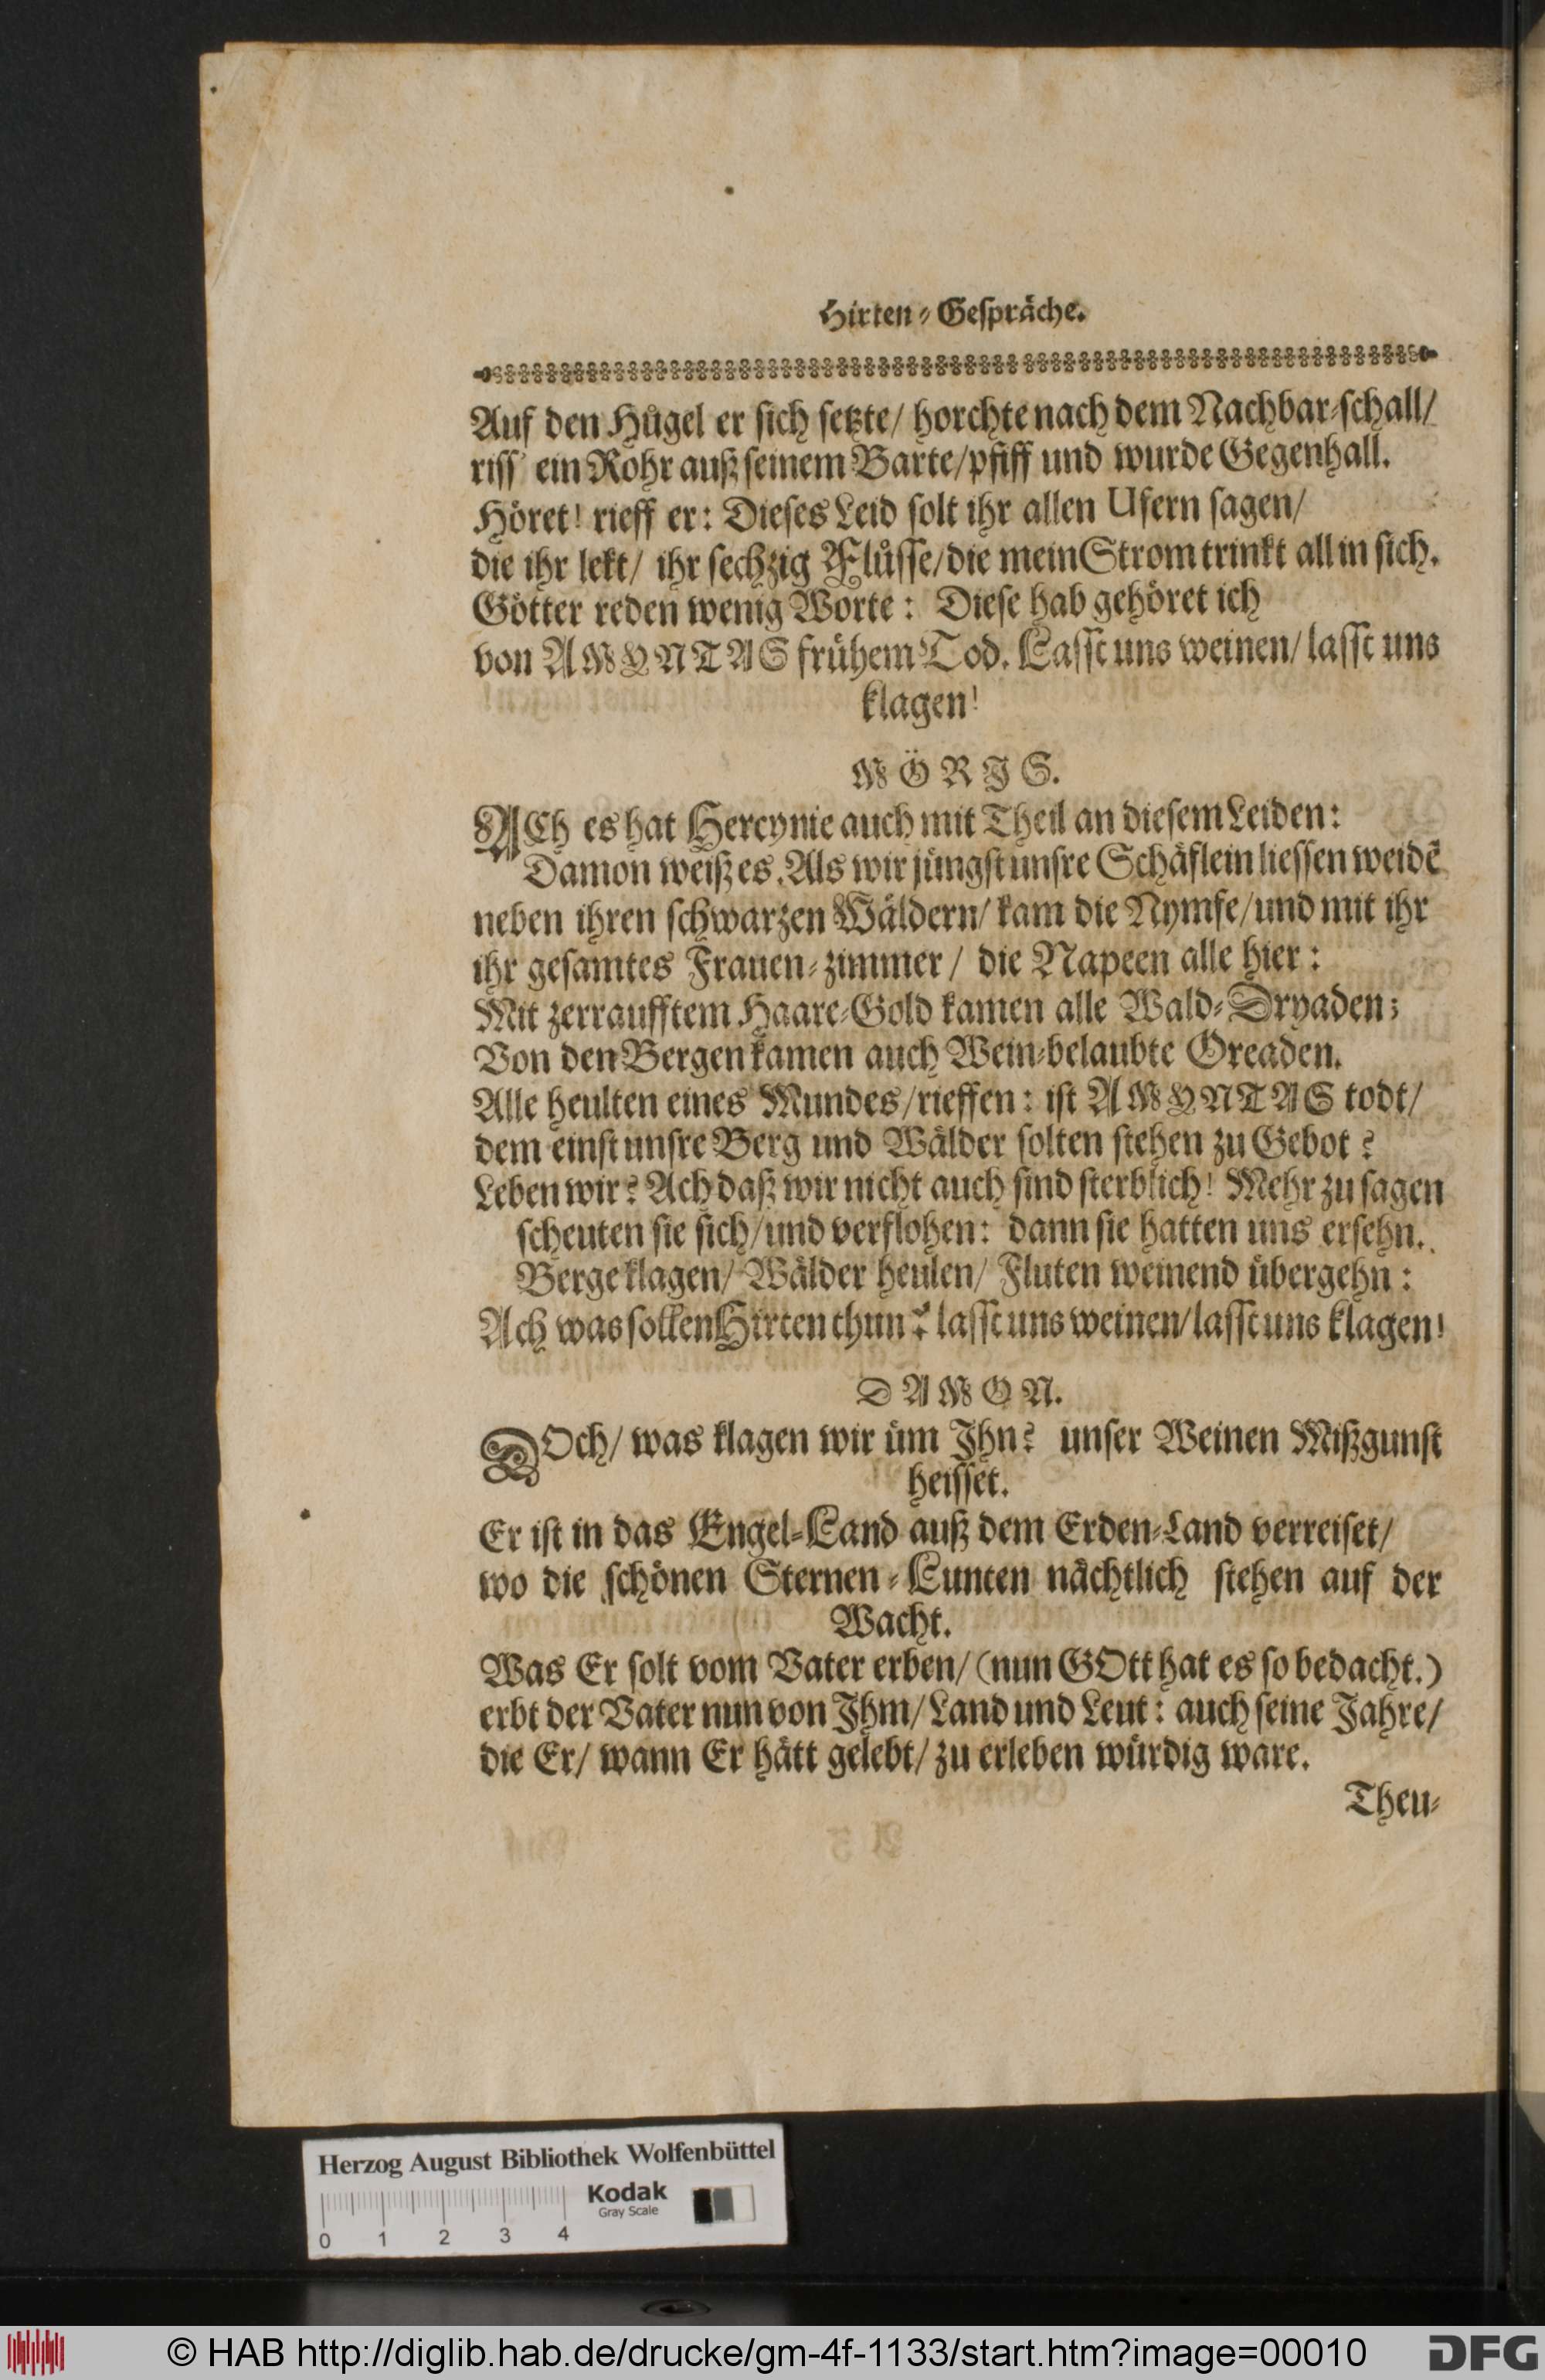 Hirten-Gespräche.
Auf den Hügel er sich setzte/ horchte nach dem Nachbar-schall/
riss ein Rohr auß seinem Barte/pfiff und wurde Gegenhall.
Höret! rieff er: Dieses Leid solt ihr allen Ufern sagen/
die ihr lekt/ ihr sechzig Flüsse/die mein Strom trinkt all in sich.
Götter reden wenig Worte: Diese hab gehöret ich
von AMYNTAS frühem Tod. Lasst uns weinen/ lasst uns
klagen!
MÖRIS.
ACh es hat Hercynie auch mit Theil an diesem Leiden:
Damon weiß es. Als wir jüngst unsre Schäflein liessen weidē
neben ihren schwarzen Wäldern/ kam die Nymfe/und mit ihr
ihr gesamtes Frauen-zimmer/ die Napeen alle hier:
Mit zerraufftem Haare-Gold kamen alle Wald-Dryaden;
Von den Bergen kamen auch Wein-belaubte Oreaden.
Alle heulten eines Mundes/rieffen: ist AMYNTAS todt/
dem einst unsre Berg und Wälder solten stehen zu Gebot?
Leben wir? Ach daß wir nicht auch sind sterblich! Mehr zu sagen
scheuten sie sich/und verflohen: dann sie hatten uns ersehn.
Berge klagen/ Wälder heulen/ Fluten weinend übergehn:
Ach was sollen Hirten thun? lasst uns weinen/lasst uns klagen!
DAMON.
DOch/ was klagen wir üm Ihn? unser Weinen Mißgunst
heisset.
Er ist in das Engel-Land auß dem Erden-Land verreiset/
wo die schönen Sternen-Lunten nächtlich stehen auf der
Wacht.
Was Er solt vom Vater erben/ (nun GOtt hat es so bedacht.)
erbt der Vater nun von Ihm/ Land und Leut: auch seine Jahre/
die Er/ wann Er hätt gelebt/ zu erleben würdig ware.
Theu-
Herzog August Bibliothek Wolfenbüttel
Kodak
Gray Scale
0 1 2 3 4
© HAB http://diglib.hab.de/drucke/gm-4f-1133/start.htm?image=00010
DFG